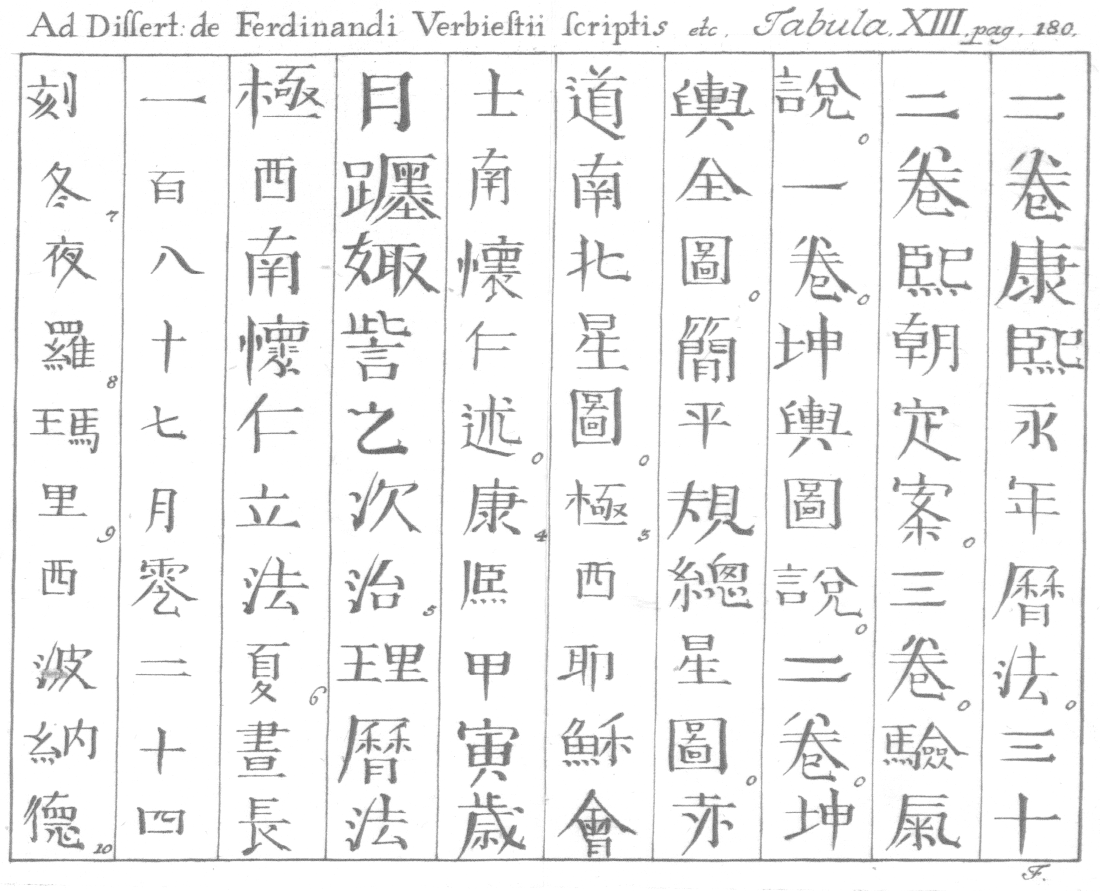 Ad Diſſert: de Ferdinandi Verbieſtii ſcriptis etc. Tabula. XIII. pag. 180.
二卷康熙永年曆法。三十
二卷熙朝定案。三卷。驗氣
說。一卷。坤輿圖說。二卷。坤
輿全圖。簡平規總星圖。赤
道南北星圖。極3西耶穌會
士南懷仁述。康4熙甲寅歲
日躔娵訾之次治5理曆法
極西南懷仁立法夏6晝長
一百八十七月零二十四
刻冬7夜羅8瑪里9西波納德10
F.